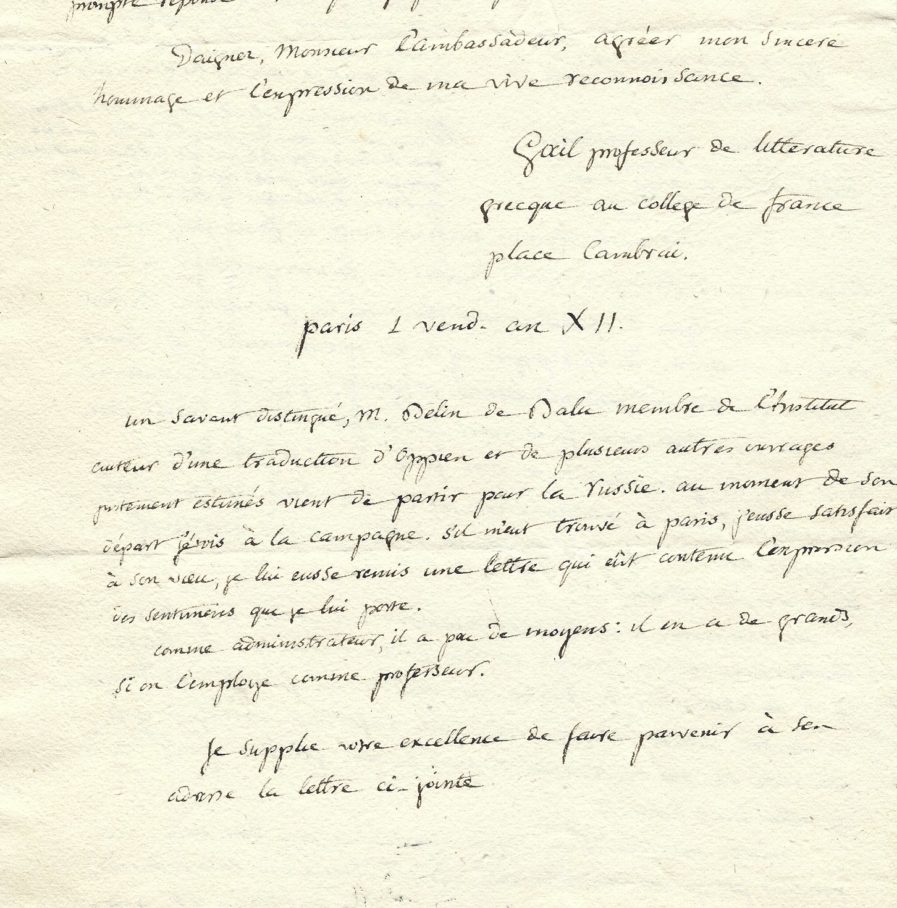 prompte réponse
Daigner, Monsieur l'ambassadeur, agréer mon sincere
hommage et l'expression de ma vive reconnoissance.
Gail professeur de litterature
grecque au college de france
place Cambrai.
paris 1 vend. an XII.
un savant distingué, M. Belin de Balu membre de l'Institut
auteur d'une traduction d'Oppien et de plusieurs autres ouvrages
justement estimés vient de partir pour la russie. au moment de son
départ j'étois à la campagne. s'il m'eut trouvé à paris, j'eusse satisfait
à son vœu, je lui eusse remis une lettre qui eût contenu l'expression
des sentimens que je lui porte.
comme administrateur, il a peu de moyens : il en a de grands,
si on l'employe comme professeur.
Je supplie votre excellence de faire parvenir à son
adresse la lettre ci-jointe